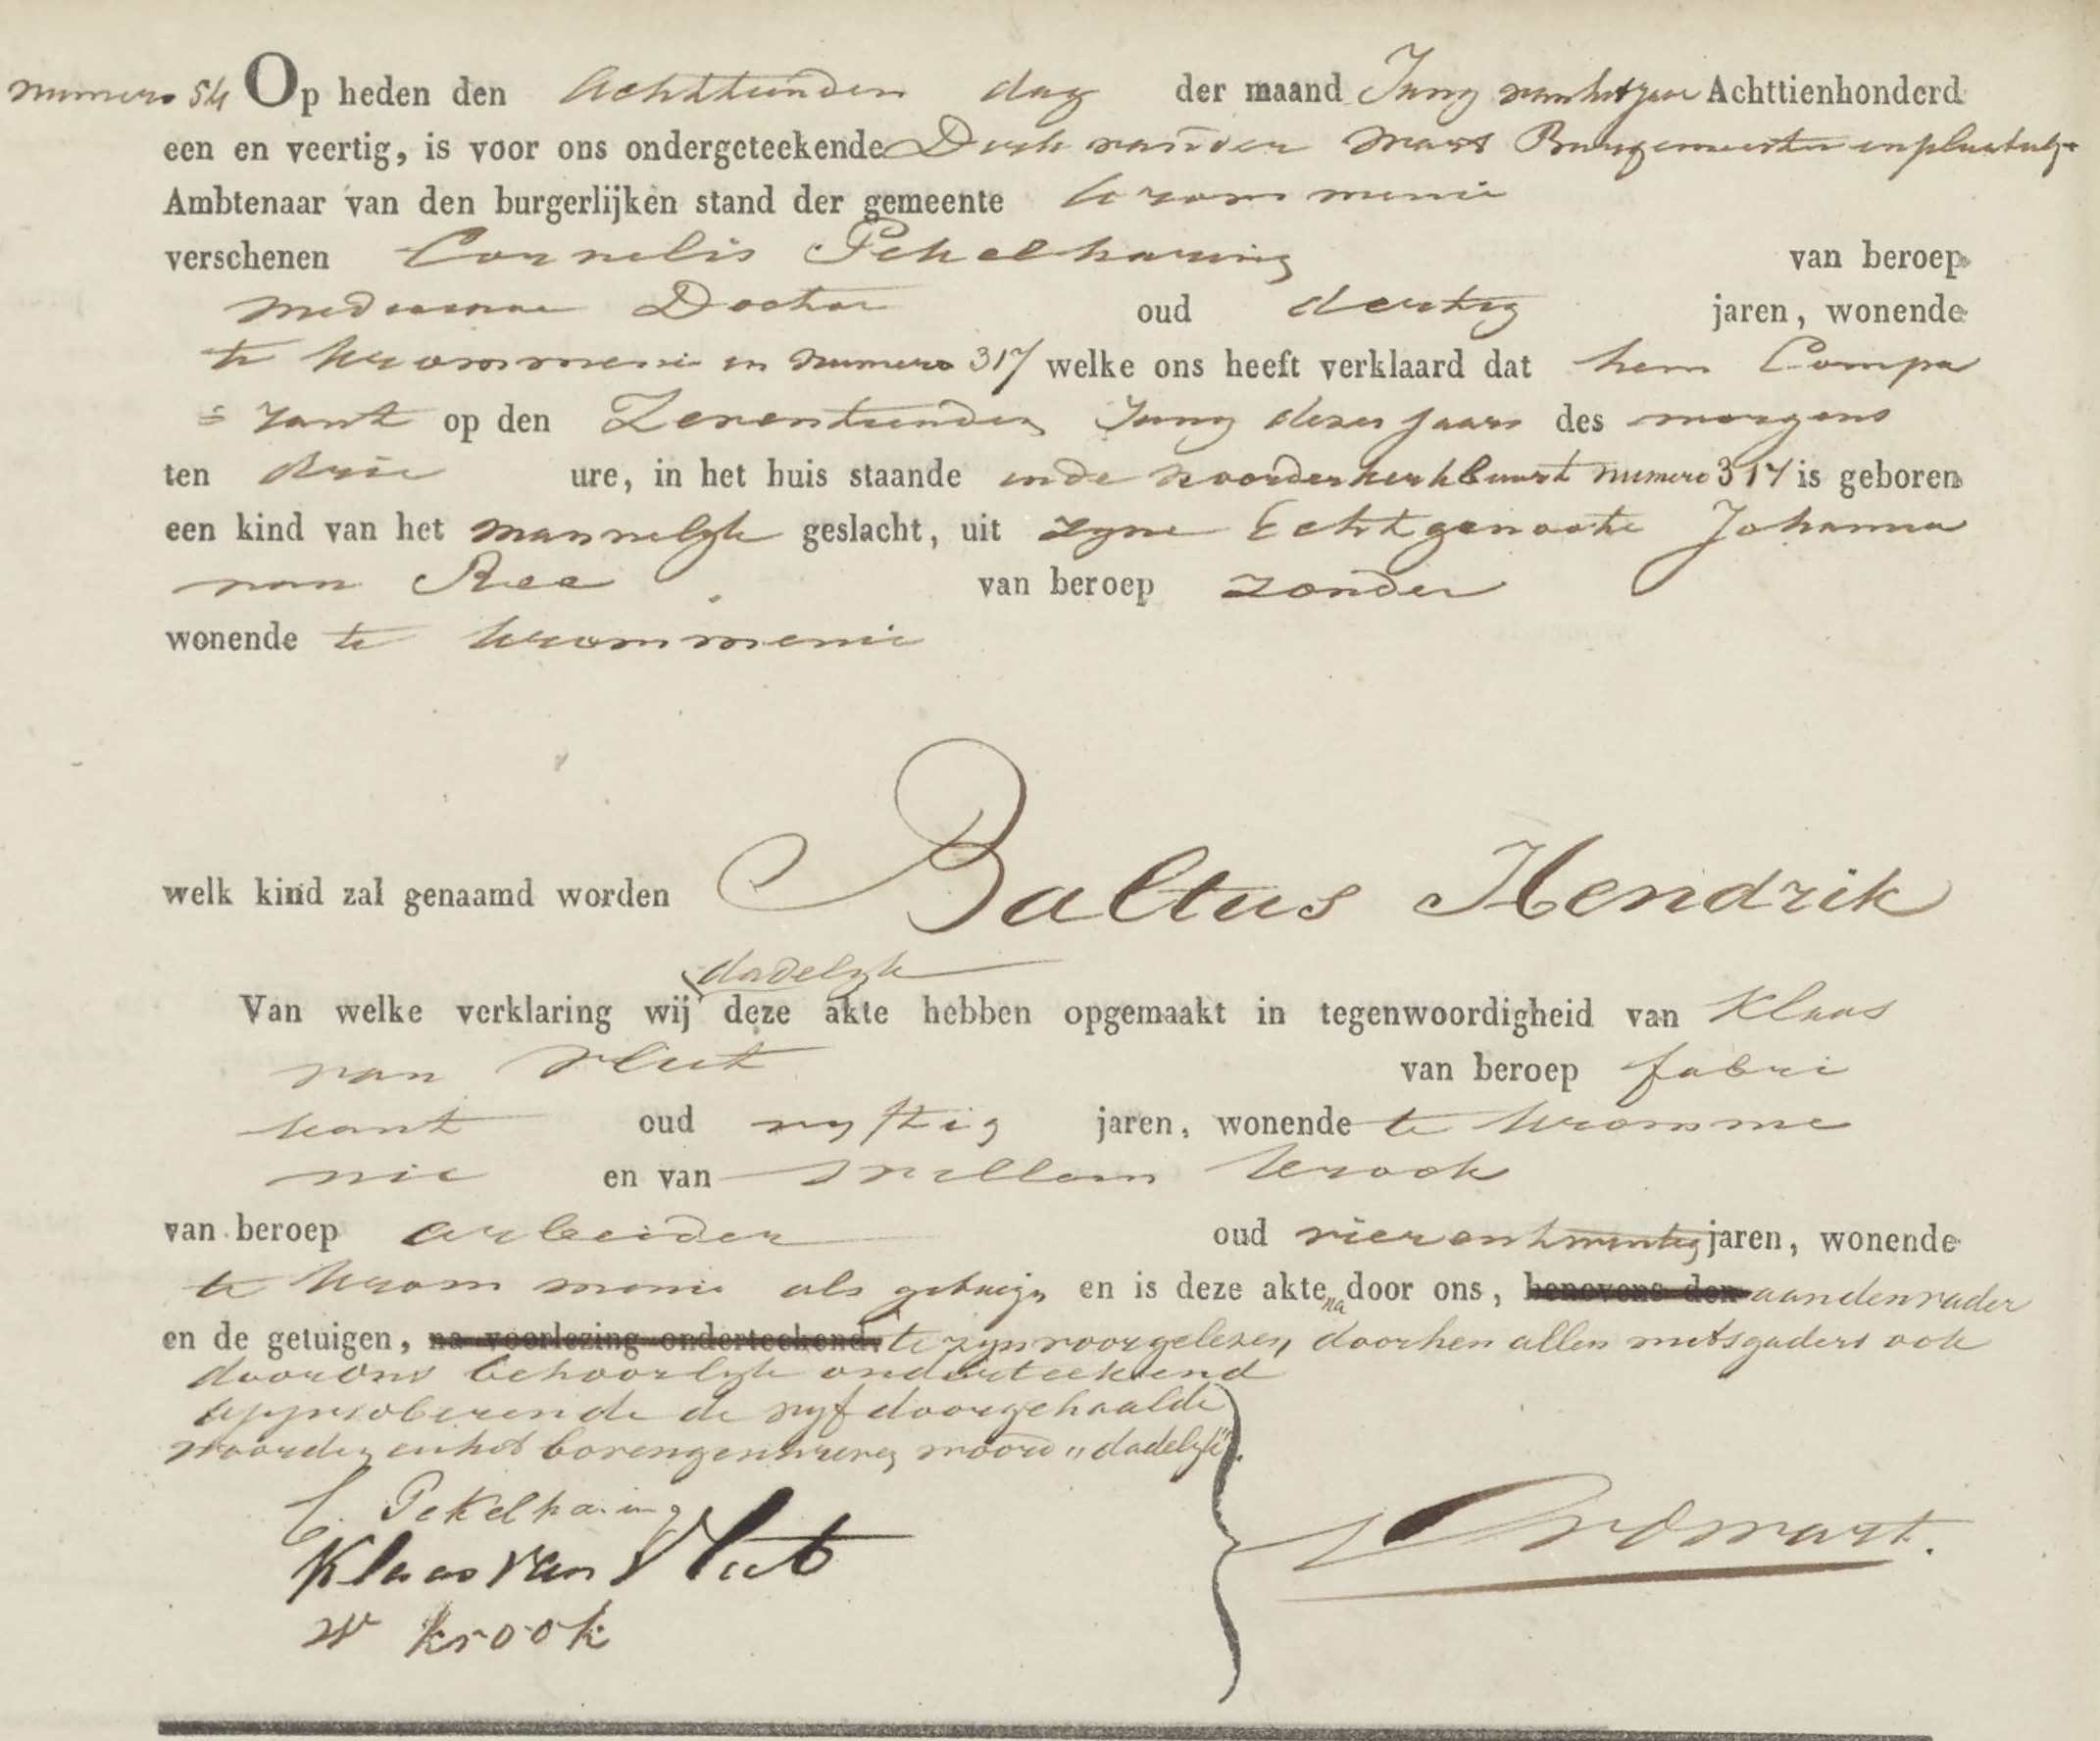 numero 54 Op heden den Achttienden dag der maand Juny van het jaar Achttienhonderd
een en veertig, is voor ons ondergeteekende Dirk van der Mars Burgemeester en plaatselyk
Ambtenaar van den burgerlijken stand der gemeente krommenie
verschenen Cornelis Pekelharing van beroep
medicinae Doctor oud dertig jaren, wonende
te krommenie in numero 317 welke ons heeft verklaard dat hem Compa
= rant op den Zeventienden Juny dezes jaars des morgens
ten drie ure, in het huis staande in de noorderkerkbuurt numero 317 is geboren
een kind van het mannelyk geslacht, uit zyne Echtgenoote Johanna
van Ree van beroep zonder
wonende te krommenie
welk kind zal genaamd worden Baltus Hendrik
dadelyk
Van welke verklaring wij deze akte hebben opgemaakt in tegenwoordigheid van Klaas
van Vliet van beroep fabri
kant oud vyftig jaren, wonende te kromme
nie en van Willem krook
van beroep arbeider oud vierentwintig jaren, wonende
te krommenie als getuigen en is deze akte na door ons, benevens den aan den vader
en de getuigen, na voorlezing onderteekend. te zyn voorgelezen, door hen allen mitsgaders ook
door ons behoorlyk onderteekend
approberende de vyf doorgehaalde
woorden en het boven woord „dadelyk".
C. Pekelharing
Klaas van Vliet
W krook